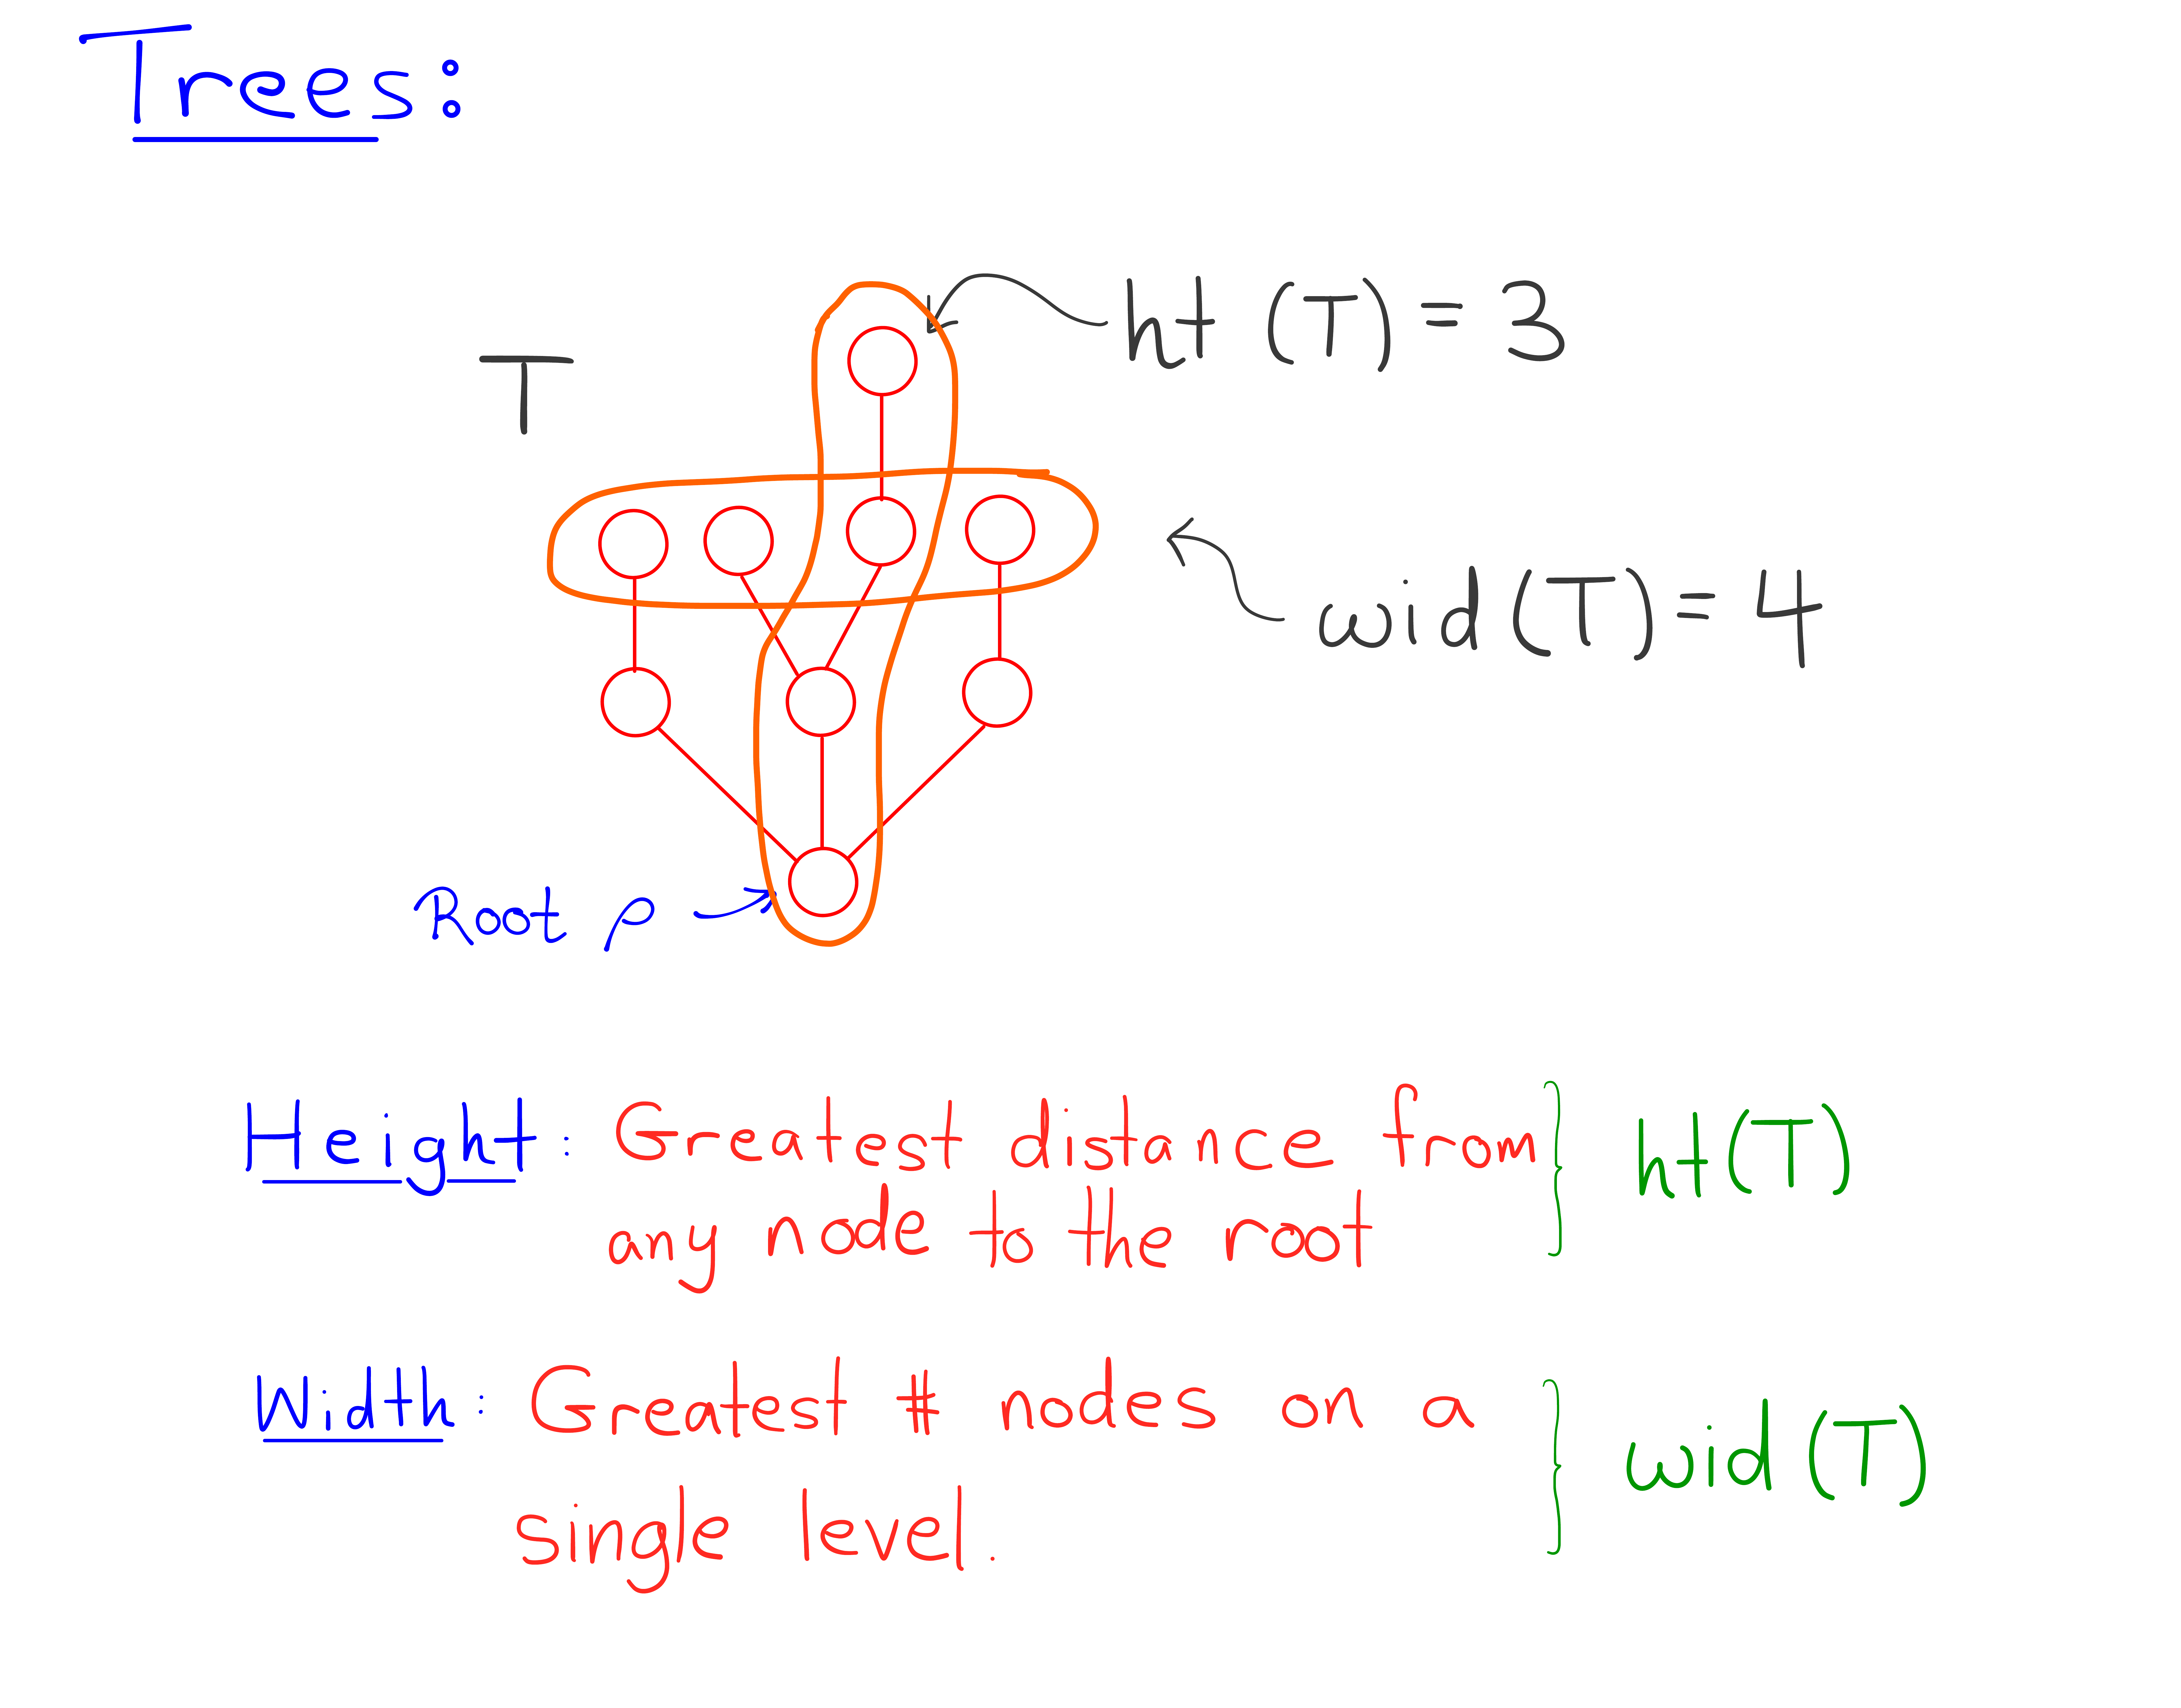 Trees:
ht (T) = 3
T
wid (T) = 4
Root ρ
Height: Greatest distance from
any node to the root
ht (T)
Width: Greatest # nodes on a
single level.
wid (T)